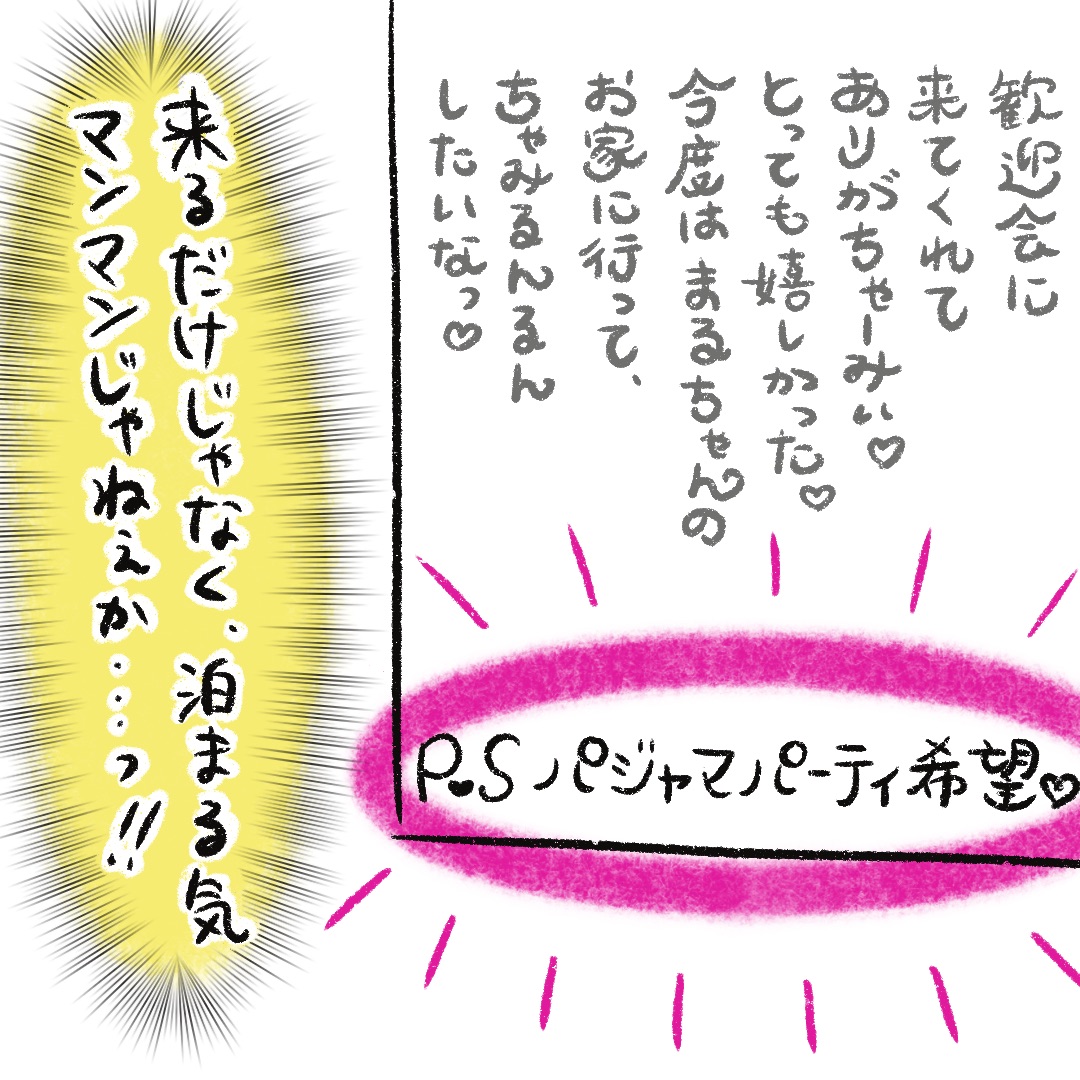 歓迎会に
来てくれて
ありがちゃーみぃ♡
とっても嬉しかった♡
今度はまるちゃんの
お家に行って、
ちゃみるんるん
したいなっ♡
P.S パジャマパーティ希望♡
来るだけじゃなく、泊まる気
マンマンじゃねぇか…っ!!